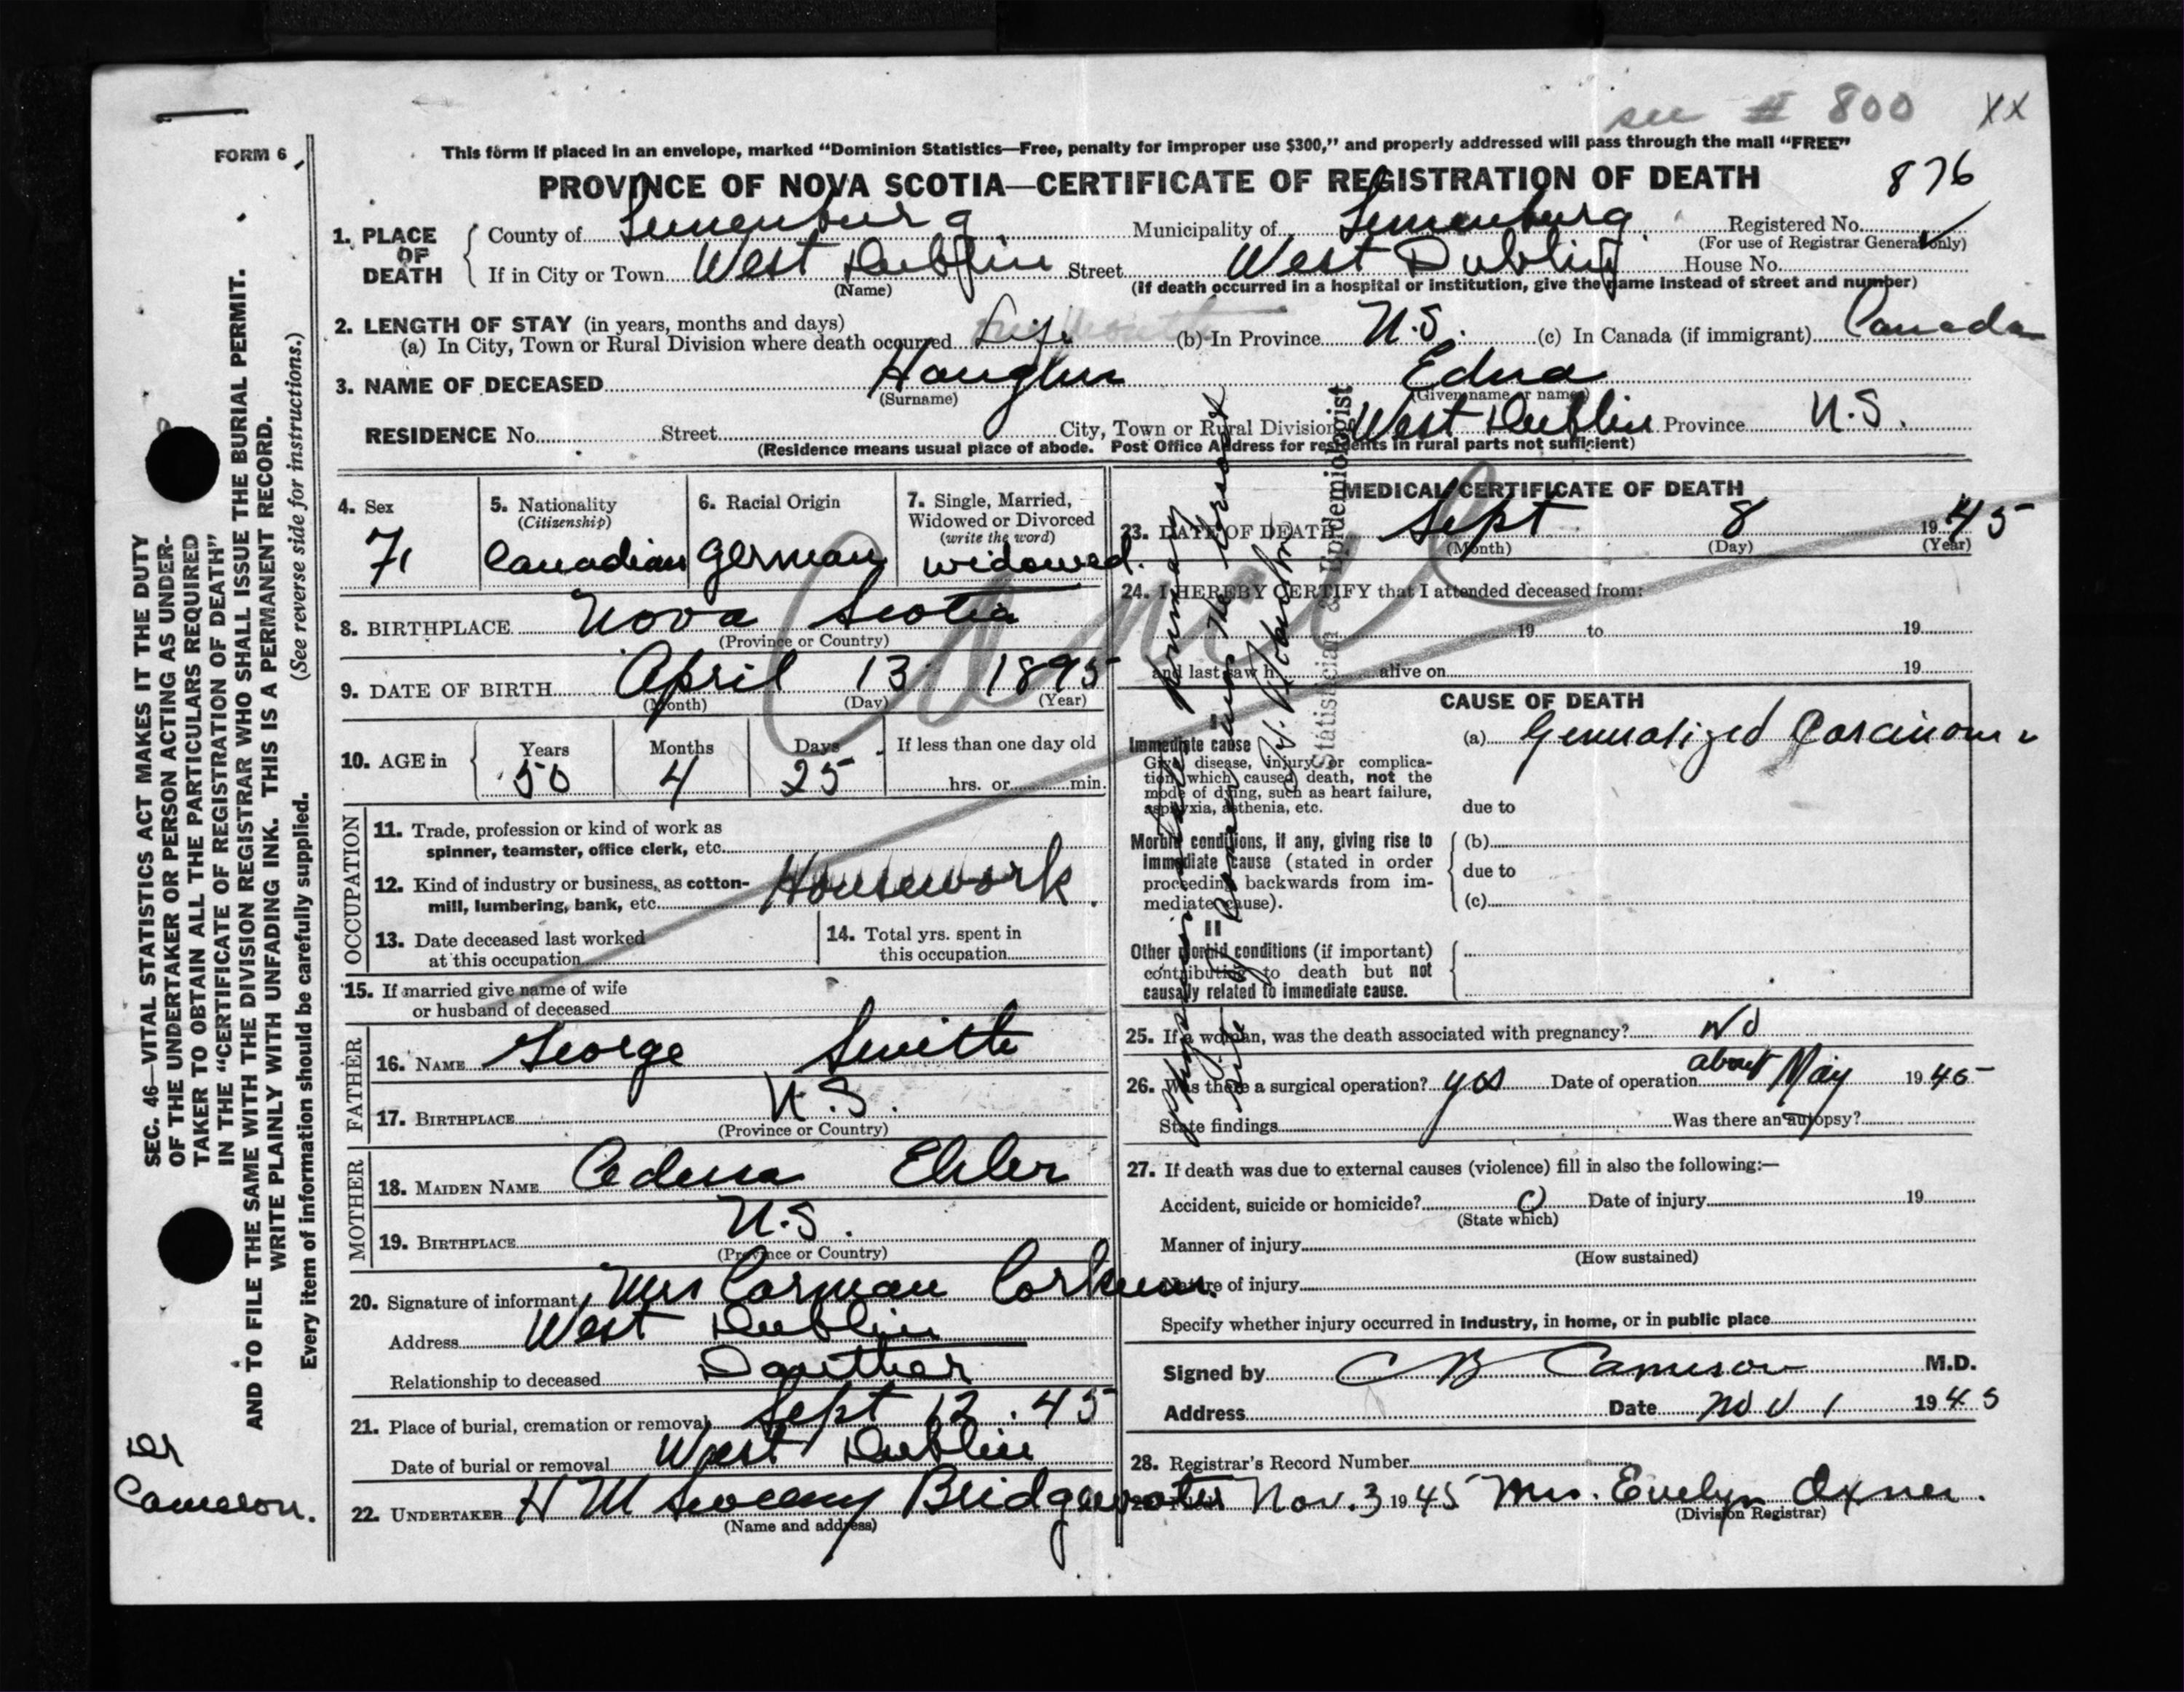 see # 800 XX
FORM 6
This form if placed in an envelope, marked “Dominion Statistics—Free, penalty for improper use $300,” and properly addressed will pass through the mail “FREE”
PROVINCE OF NOVA SCOTIA—CERTIFICATE OF REGISTRATION OF DEATH 876
1. PLACE OF DEATH
County of Lunenburg Municipality of Lunenburg Registered No.
(For use of Registrar General only)
If in City or Town West Dublin Street West Dublin House No.
(Name) (If death occurred in a hospital or institution, give the name instead of street and number)
2. LENGTH OF STAY (in years, months and days)
(a) In City, Town or Rural Division where death occurred Life (b) In Province N.S. (c) In Canada (if immigrant) Canada
3. NAME OF DECEASED Haughn Edna
(Surname) (Given name or names)
RESIDENCE No. Street City, Town or Rural Division West Dublin Province N.S.
(Residence means usual place of abode. Post Office Address for residents in rural parts not sufficient)
4. Sex
F.
5. Nationality
(Citizenship)
Canadian
6. Racial Origin
German
7. Single, Married,
Widowed or Divorced
(write the word)
widowed.
8. BIRTHPLACE Nova Scotia
(Province or Country)
9. DATE OF BIRTH April 13 1895
(Month) (Day) (Year)
10. AGE in Years Months Days If less than one day old
50 4 25 hrs. or min.
OCCUPATION
11. Trade, profession or kind of work as
spinner, teamster, office clerk, etc.
12. Kind of industry or business, as cotton-
mill, lumbering, bank, etc. Housework.
13. Date deceased last worked
at this occupation
14. Total yrs. spent in
this occupation
15. If married give name of wife
or husband of deceased
FATHER
16. NAME George Smith
17. BIRTHPLACE N.S.
(Province or Country)
MOTHER
18. MAIDEN NAME Ehler
19. BIRTHPLACE N.S.
(Province or Country)
20. Signature of informant Mrs Corman Corkum.
Address West Dublin
Relationship to deceased Douther
21. Place of burial, cremation or removal Sept 12. 45
Date of burial or removal West Dublin
22. UNDERTAKER H M Sweeny Bridgewater
(Name and address)
MEDICAL CERTIFICATE OF DEATH
23. DATE OF DEATH Sept 8 1945
(Month) (Day) (Year)
24. I HEREBY CERTIFY that I attended deceased from:
19 to 19
and last saw h alive on 19
CAUSE OF DEATH
I
Immediate cause
Give disease, injury or complica-
tion which caused death, not the
mode of dying, such as heart failure,
asphyxia, asthenia, etc.
(a) Generalized Carcinoma
due to
Morbid conditions, if any, giving rise to
immediate cause (stated in order
proceeding backwards from im-
mediate cause).
(b)
due to
(c)
II
Other morbid conditions (if important)
contributing to death but not
causally related to immediate cause.
25. If a woman, was the death associated with pregnancy? No
26. Was there a surgical operation? yes Date of operation about May 1945
State findings Was there an autopsy?
27. If death was due to external causes (violence) fill in also the following:—
Accident, suicide or homicide? Date of injury 19
(State which)
Manner of injury
(How sustained)
Nature of injury
Specify whether injury occurred in industry, in home, or in public place
Signed by C B Cameron M.D.
Address Date Nov 1 1945
28. Registrar's Record Number
Nov. 3 1945 Mrs. Evelyn Oxner.
(Division Registrar)
Cancel
Statistician & Epidemiologist
SEC. 46—VITAL STATISTICS ACT MAKES IT THE DUTY
OF THE UNDERTAKER OR PERSON ACTING AS UNDER-
TAKER TO OBTAIN ALL THE PARTICULARS REQUIRED
IN THE “CERTIFICATE OF REGISTRATION OF DEATH”
AND TO FILE THE SAME WITH THE DIVISION REGISTRAR WHO SHALL ISSUE THE BURIAL PERMIT.
WRITE PLAINLY WITH UNFADING INK. THIS IS A PERMANENT RECORD.
Every item of information should be carefully supplied. (See reverse side for instructions.)
Dr
Cameron.